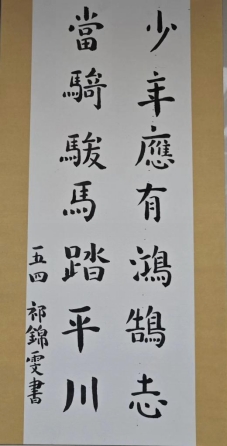 少年應有鴻鵠志
當騎駿馬踏平川
五四 祁錦雯書